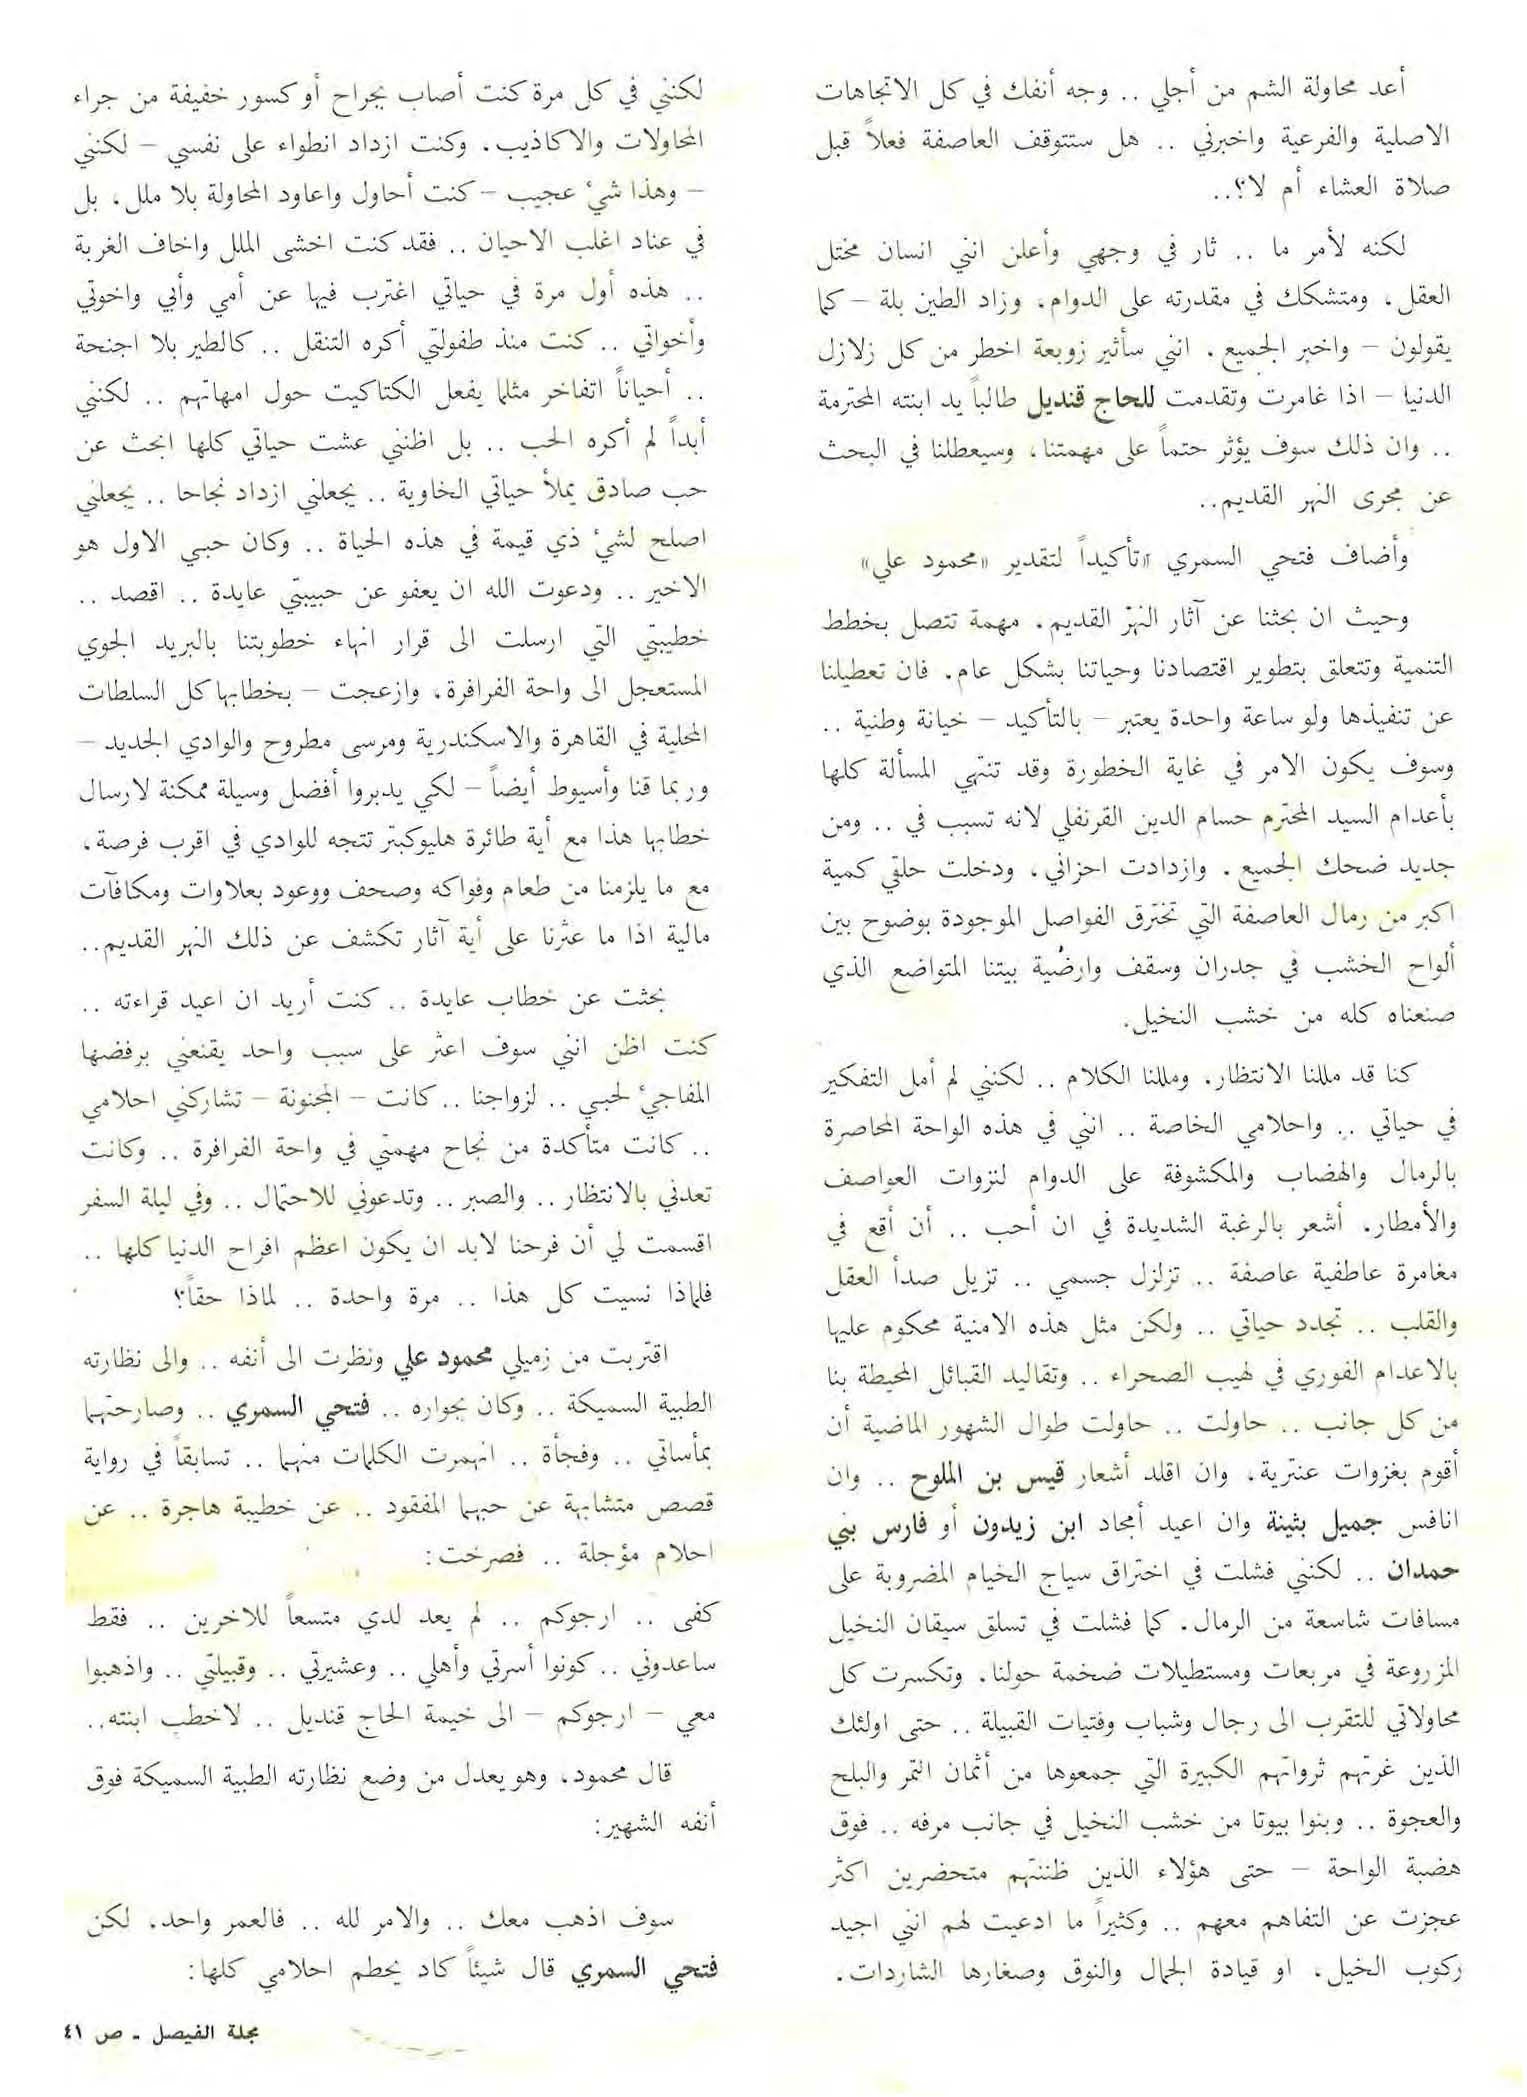 أعد محاولة الشم من أجلي .. وجه أنفك في كل الاتجاهات
الاصلية والفرعية واخبرني .. هل ستتوقف العاصفة فعلاً قبل
صلاة العشاء أم لا؟..
لكنه لأمر ما .. ثار في وجهي وأعلن انني انسان مختل
العقل، ومتشكك في مقدرته على الدوام، وزاد الطين بلة - كما
يقولون - واخبر الجميع، انني سأثير زوبعة اخطر من كل زلازل
الدنيا - اذا غامرت وتقدمت للحاج قنديل طالباً يد ابنته المحترمة
.. وان ذلك سوف يؤثر حتماً على مهمتنا، وسيعطلنا في البحث
عن مجرى النهر القديم..
وأضاف فتحي السمري «تأكيداً لتقدير «محمود علي»
وحيث ان بحثنا عن آثار النهر القديم، مهمة تتصل بخطط
التنمية وتتعلق بتطوير اقتصادنا وحياتنا بشكل عام، فان تعطيلنا
عن تنفيذها ولو ساعة واحدة يعتبر - بالتأكيد - خيانة وطنية ..
وسوف يكون الامر في غاية الخطورة وقد تنتهي المسألة كلها
بأعدام السيد المحترم حسام الدين القرنفلي لانه تسبب في .. ومن
جديد ضحك الجميع، وازدادت احزاني، ودخلت حلقي كمية
اكبر من رمال العاصفة التي تخترق الفواصل الموجودة بوضوح بين
ألواح الخشب في جدران وسقف وارضية بيتنا المتواضع الذي
صنعناه كله من خشب النخيل.
كنا قد مللنا الانتظار، ومللنا الكلام .. لكنني لم أمل التفكير
في حياتي .. واحلامي الخاصة .. انني في هذه الواحة المحاصرة
بالرمال والهضاب والمكشوفة على الدوام لنزوات العواصف
والأمطار، أشعر بالرغبة الشديدة في ان أحب .. أن أقع في
مغامرة عاطفية عاصفة .. تزلزل جسمي .. تزيل صدأ العقل
والقلب .. تجدد حياتي .. ولكن مثل هذه الامنية محكوم عليها
بالاعدام الفوري في لهيب الصحراء .. وتقاليد القبائل المحيطة بنا
من كل جانب .. حاولت .. حاولت طوال الشهور الماضية أن
أقوم بغزوات عنترية، وان اقلد أشعار قيس بن الملوح .. وان
انافس جميل بثينة وان اعيد أمجاد ابن زيدون أو فارس بني
حمدان .. لكنني فشلت في اختراق سياج الخيام المضروبة على
مسافات شاسعة من الرمال، كما فشلت في تسلق سيقان النخيل
المزروعة في مربعات ومستطيلات ضخمة حولنا، وتكسرت كل
محاولاتي للتقرب الى رجال وشباب وفتيات القبيلة .. حتى اولئك
الذين غرتهم ثرواتهم الكبيرة التي جمعوها من أثمان التمر والبلح
والعجوة .. وبنوا بيوتا من خشب النخيل في جانب مرفه .. فوق
هضبة الواحة - حتى هؤلاء الذين ظننتهم متحضرين اكثر
عجزت عن التفاهم معهم .. وكثيراً ما ادعيت لهم انني اجيد
ركوب الخيل، او قيادة الجمال والنوق وصغارها الشاردات،
لكنني في كل مرة كنت أصاب بجراح أو كسور خفيفة من جراء
المحاولات والاكاذيب، وكنت ازداد انطواء على نفسي - لكنني
- وهذا شيء عجيب - كنت أحاول واعاود المحاولة بلا ملل، بل
في عناد اغلب الاحيان .. فقد كنت اخشى الملل واخاف الغربة
.. هذه أول مرة في حياتي اغترب فيها عن أمي وأبي واخوتي
وأخواتي .. كنت منذ طفولتي أكره التنقل .. كالطير بلا اجنحة
.. أحياناً اتفاخر مثلما يفعل الكتاكيت حول امهاتهم .. لكنني
أبداً لم أكره الحب .. بل اظنني عشت حياتي كلها ابحث عن
حب صادق يملأ حياتي الخاوية .. يجعلني ازداد نجاحا .. يجعلني
اصلح لشيء ذي قيمة في هذه الحياة .. وكان حبي الاول هو
الاخير .. ودعوت الله ان يعفو عن حبيبتي عايدة .. اقصد ..
خطيبتي التي ارسلت الى قرار انهاء خطوبتنا بالبريد الجوي
المستعجل الى واحة الفرافرة، وازعجت - بخطابها كل السلطات
المحلية في القاهرة والاسكندرية ومرسى مطروح والوادي الجديد -
وربما قنا وأسيوط أيضاً - لكي يدبروا أفضل وسيلة ممكنة لارسال
خطابها هذا مع أية طائرة هليوكبتر تتجه للوادي في اقرب فرصة،
مع ما يلزمنا من طعام وفواكه وصحف ووعود بعلاوات ومكافآت
مالية اذا ما عثرنا على أية آثار تكشف عن ذلك النهر القديم..
بحثت عن خطاب عايدة .. كنت أريد ان اعيد قراءته ..
كنت اظن انني سوف اعثر على سبب واحد يقنعني برفضها
المفاجيء لحبي .. لزواجنا .. كانت - المجنونة - تشاركني احلامي
.. كانت متأكدة من نجاح مهمتي في واحة الفرافرة .. وكانت
تعدني بالانتظار .. والصبر .. وتدعوني للاحتمال .. وفي ليلة السفر
اقسمت لي أن فرحنا لابد ان يكون اعظم افراح الدنيا كلها ..
فلماذا نسيت كل هذا .. مرة واحدة .. لماذا حقاً؟
اقتربت من زميلي محمود علي ونظرت الى أنفه .. والى نظارته
الطبية السميكة .. وكان بجواره .. فتحي السمري .. وصارحتهما
بمأساتي .. وفجأة .. انهمرت الكلمات منهما .. تسابقاً في رواية
قصص متشابهة عن حبهما المفقود .. عن خطيبة هاجرة .. عن
احلام مؤجلة .. فصرخت:
كفى .. ارجوكم .. لم يعد لدي متسعاً للاخرين .. فقط
ساعدوني .. كونوا أسرتي وأهلي .. وعشيرتي .. وقبيلتي .. واذهبوا
معي - ارجوكم - الى خيمة الحاج قنديل .. لاخطب ابنته..
قال محمود، وهو يعدل من وضع نظارته الطبية السميكة فوق
أنفه الشهير:
سوف اذهب معك .. والامر لله .. فالعمر واحد، لكن
فتحي السمري قال شيئاً كاد يحطم احلامي كلها:
مجلة الفيصل - ص ٤١